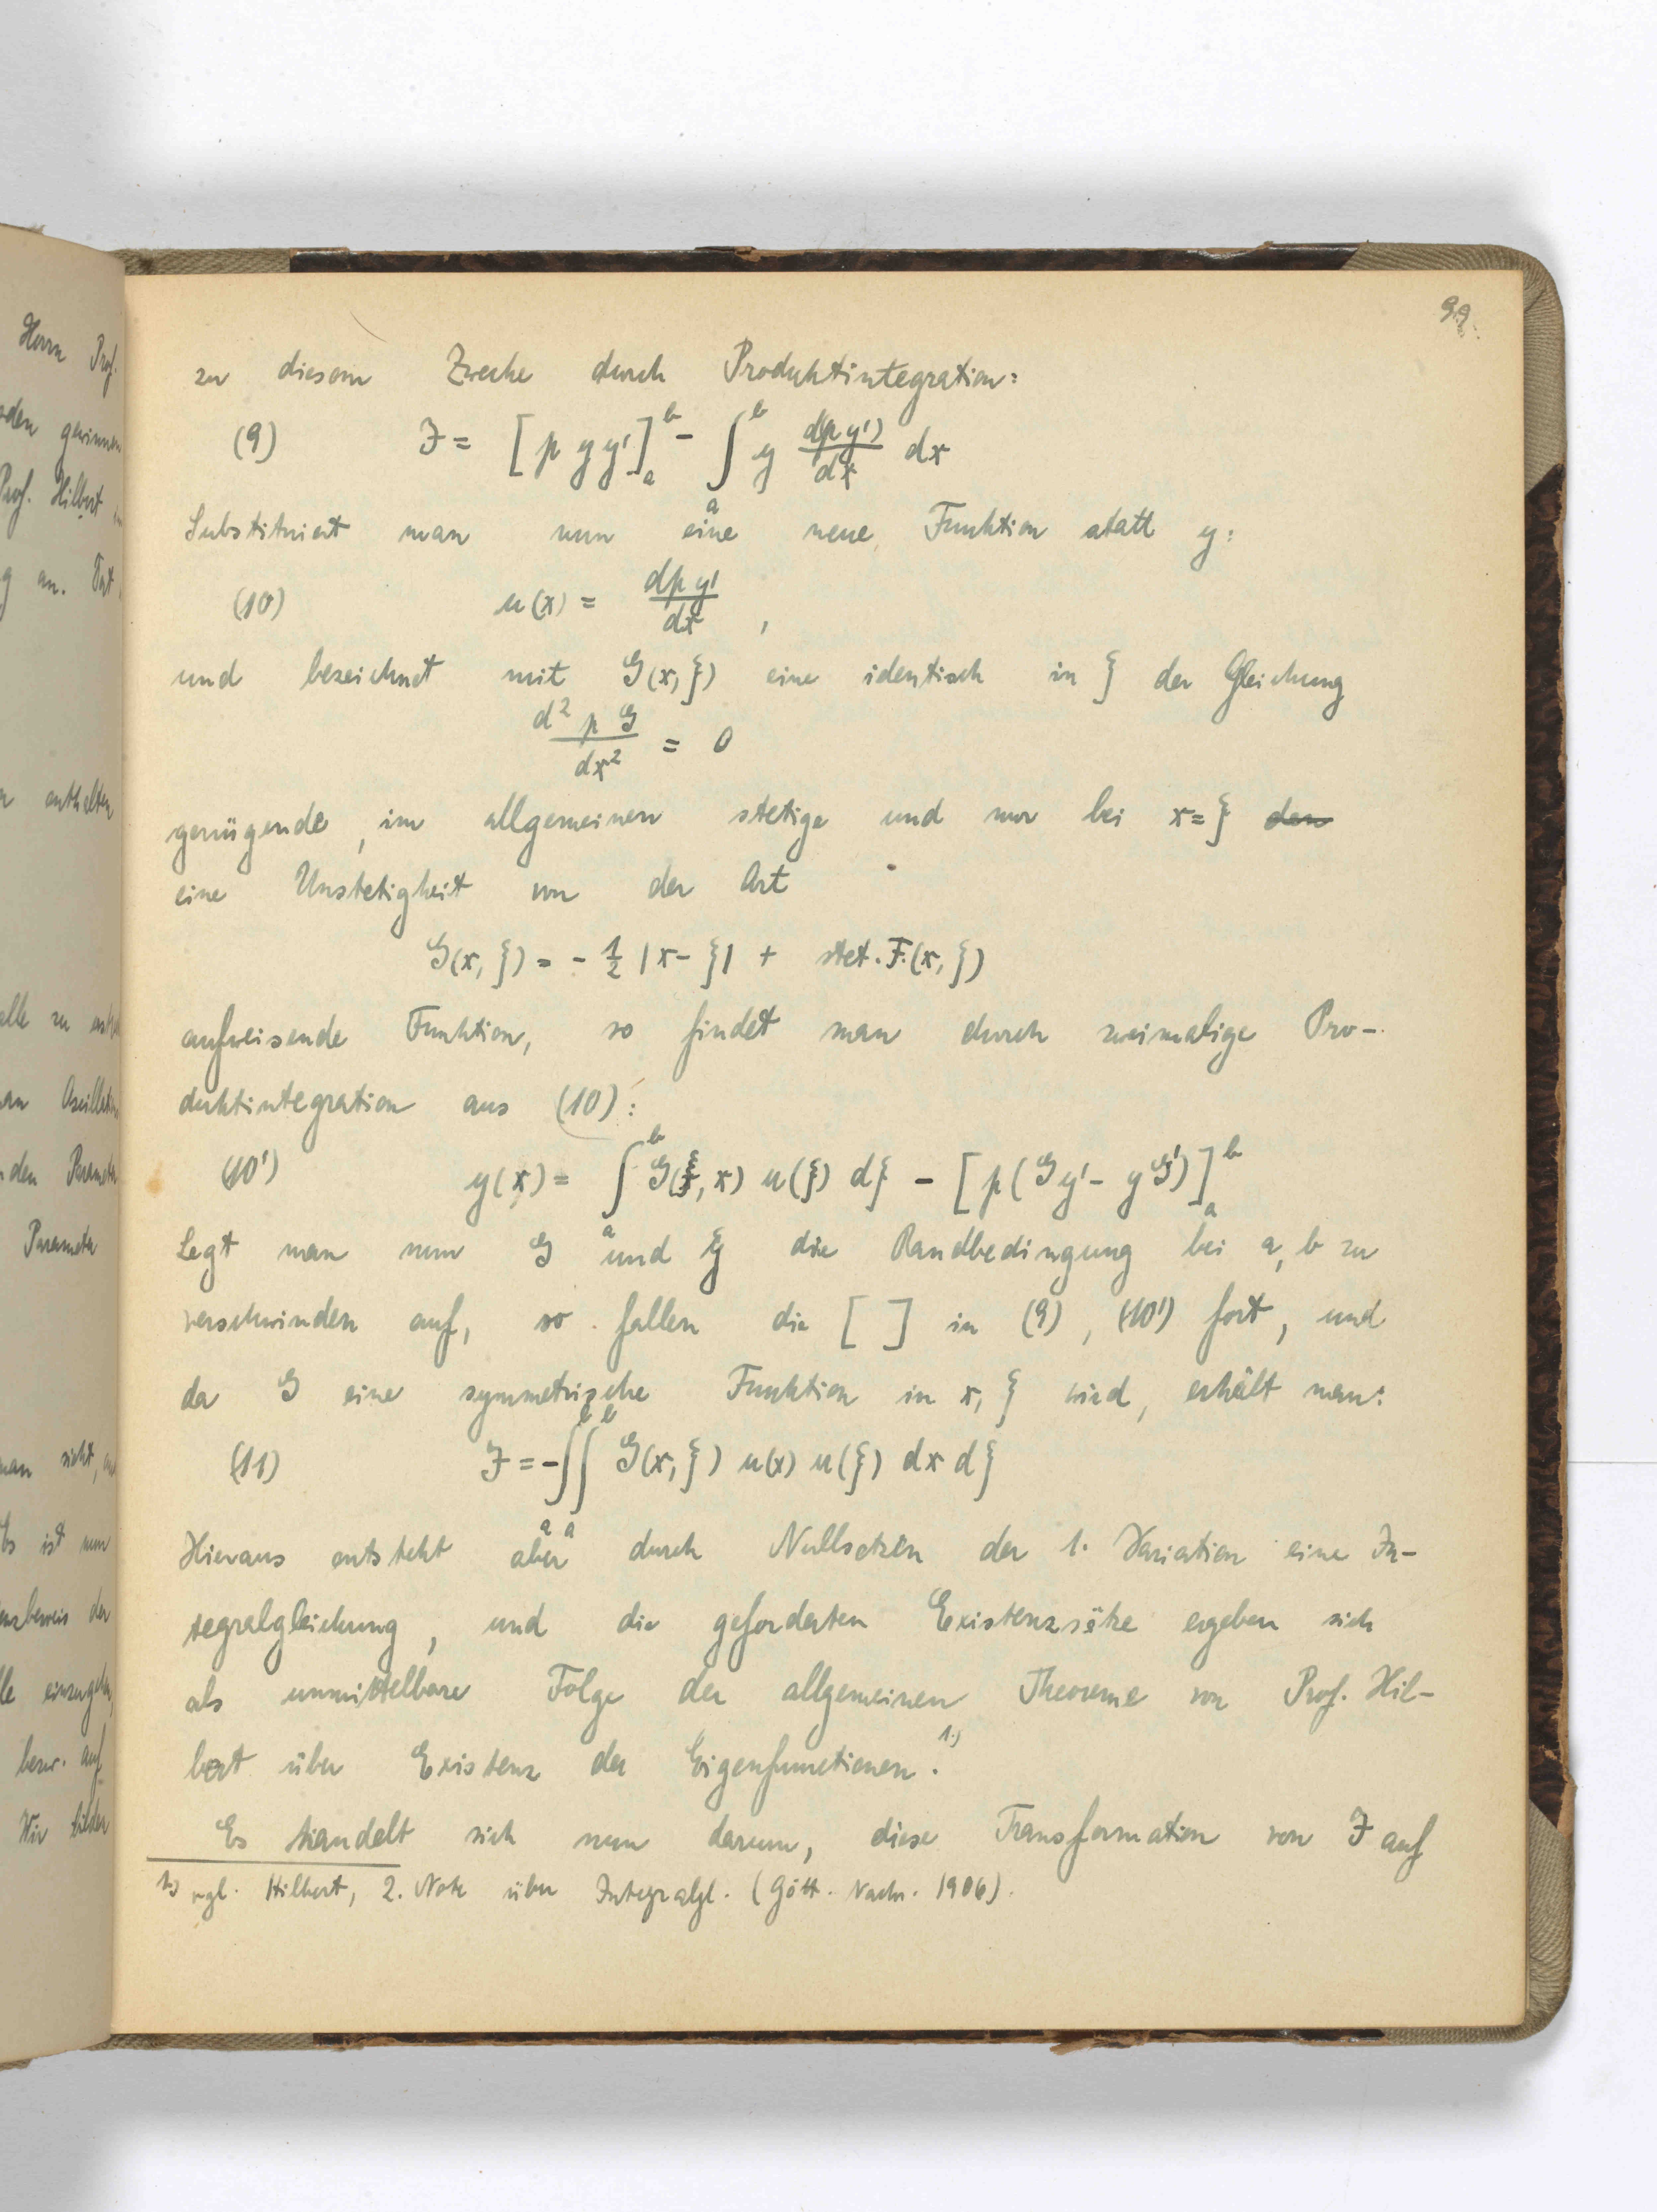 99.
zu diesem Zwecke durch Produktintegration:
(9) J = [p y y']_a^b - ∫_a^b y d(p y')/dx dx
Substituiert man nun eine neue Funktion statt y:
(10) u(x) = dp y'/dx ,
und bezeichnet mit G(x, ξ) eine identisch in ξ der Gleichung
d² p G / dx² = 0
genügende, im allgemeinen stetige und nur bei x = ξ
eine Unstetigkeit von der Art
G(x, ξ) = - 1/2 |x - ξ| + stet. F.(x, ξ)
aufweisende Funktion, so findet man durch zweimalige Pro-
duktintegration aus (10):
(10') y(x) = ∫_a^b G(ξ, x) u(ξ) dξ - [p(G y' - y G')]_a^b
Legt man nun G und y die Randbedingung bei a, b zu
verschwinden auf, so fallen die [ ] in (9), (10') fort, und
da G eine symmetrische Funktion in x, ξ wird, erhält man:
(11) J = -∫_a^b ∫_a^b G(x, ξ) u(x) u(ξ) dx dξ
Hieraus entsteht aber durch Nullsetzen der 1. Variation eine In-
tegralgleichung, und die geforderten Existenzsätze ergeben sich
als unmittelbare Folge der allgemeinen Theoreme von Prof. Hil-
bert über Existenz der Eigenfunctionen. 1.)
Es handelt sich nun darum, diese Transformation von J auf
1.) vgl. Hilbert, 2. Note über Integralgl. (Gött. Nachr. 1906).